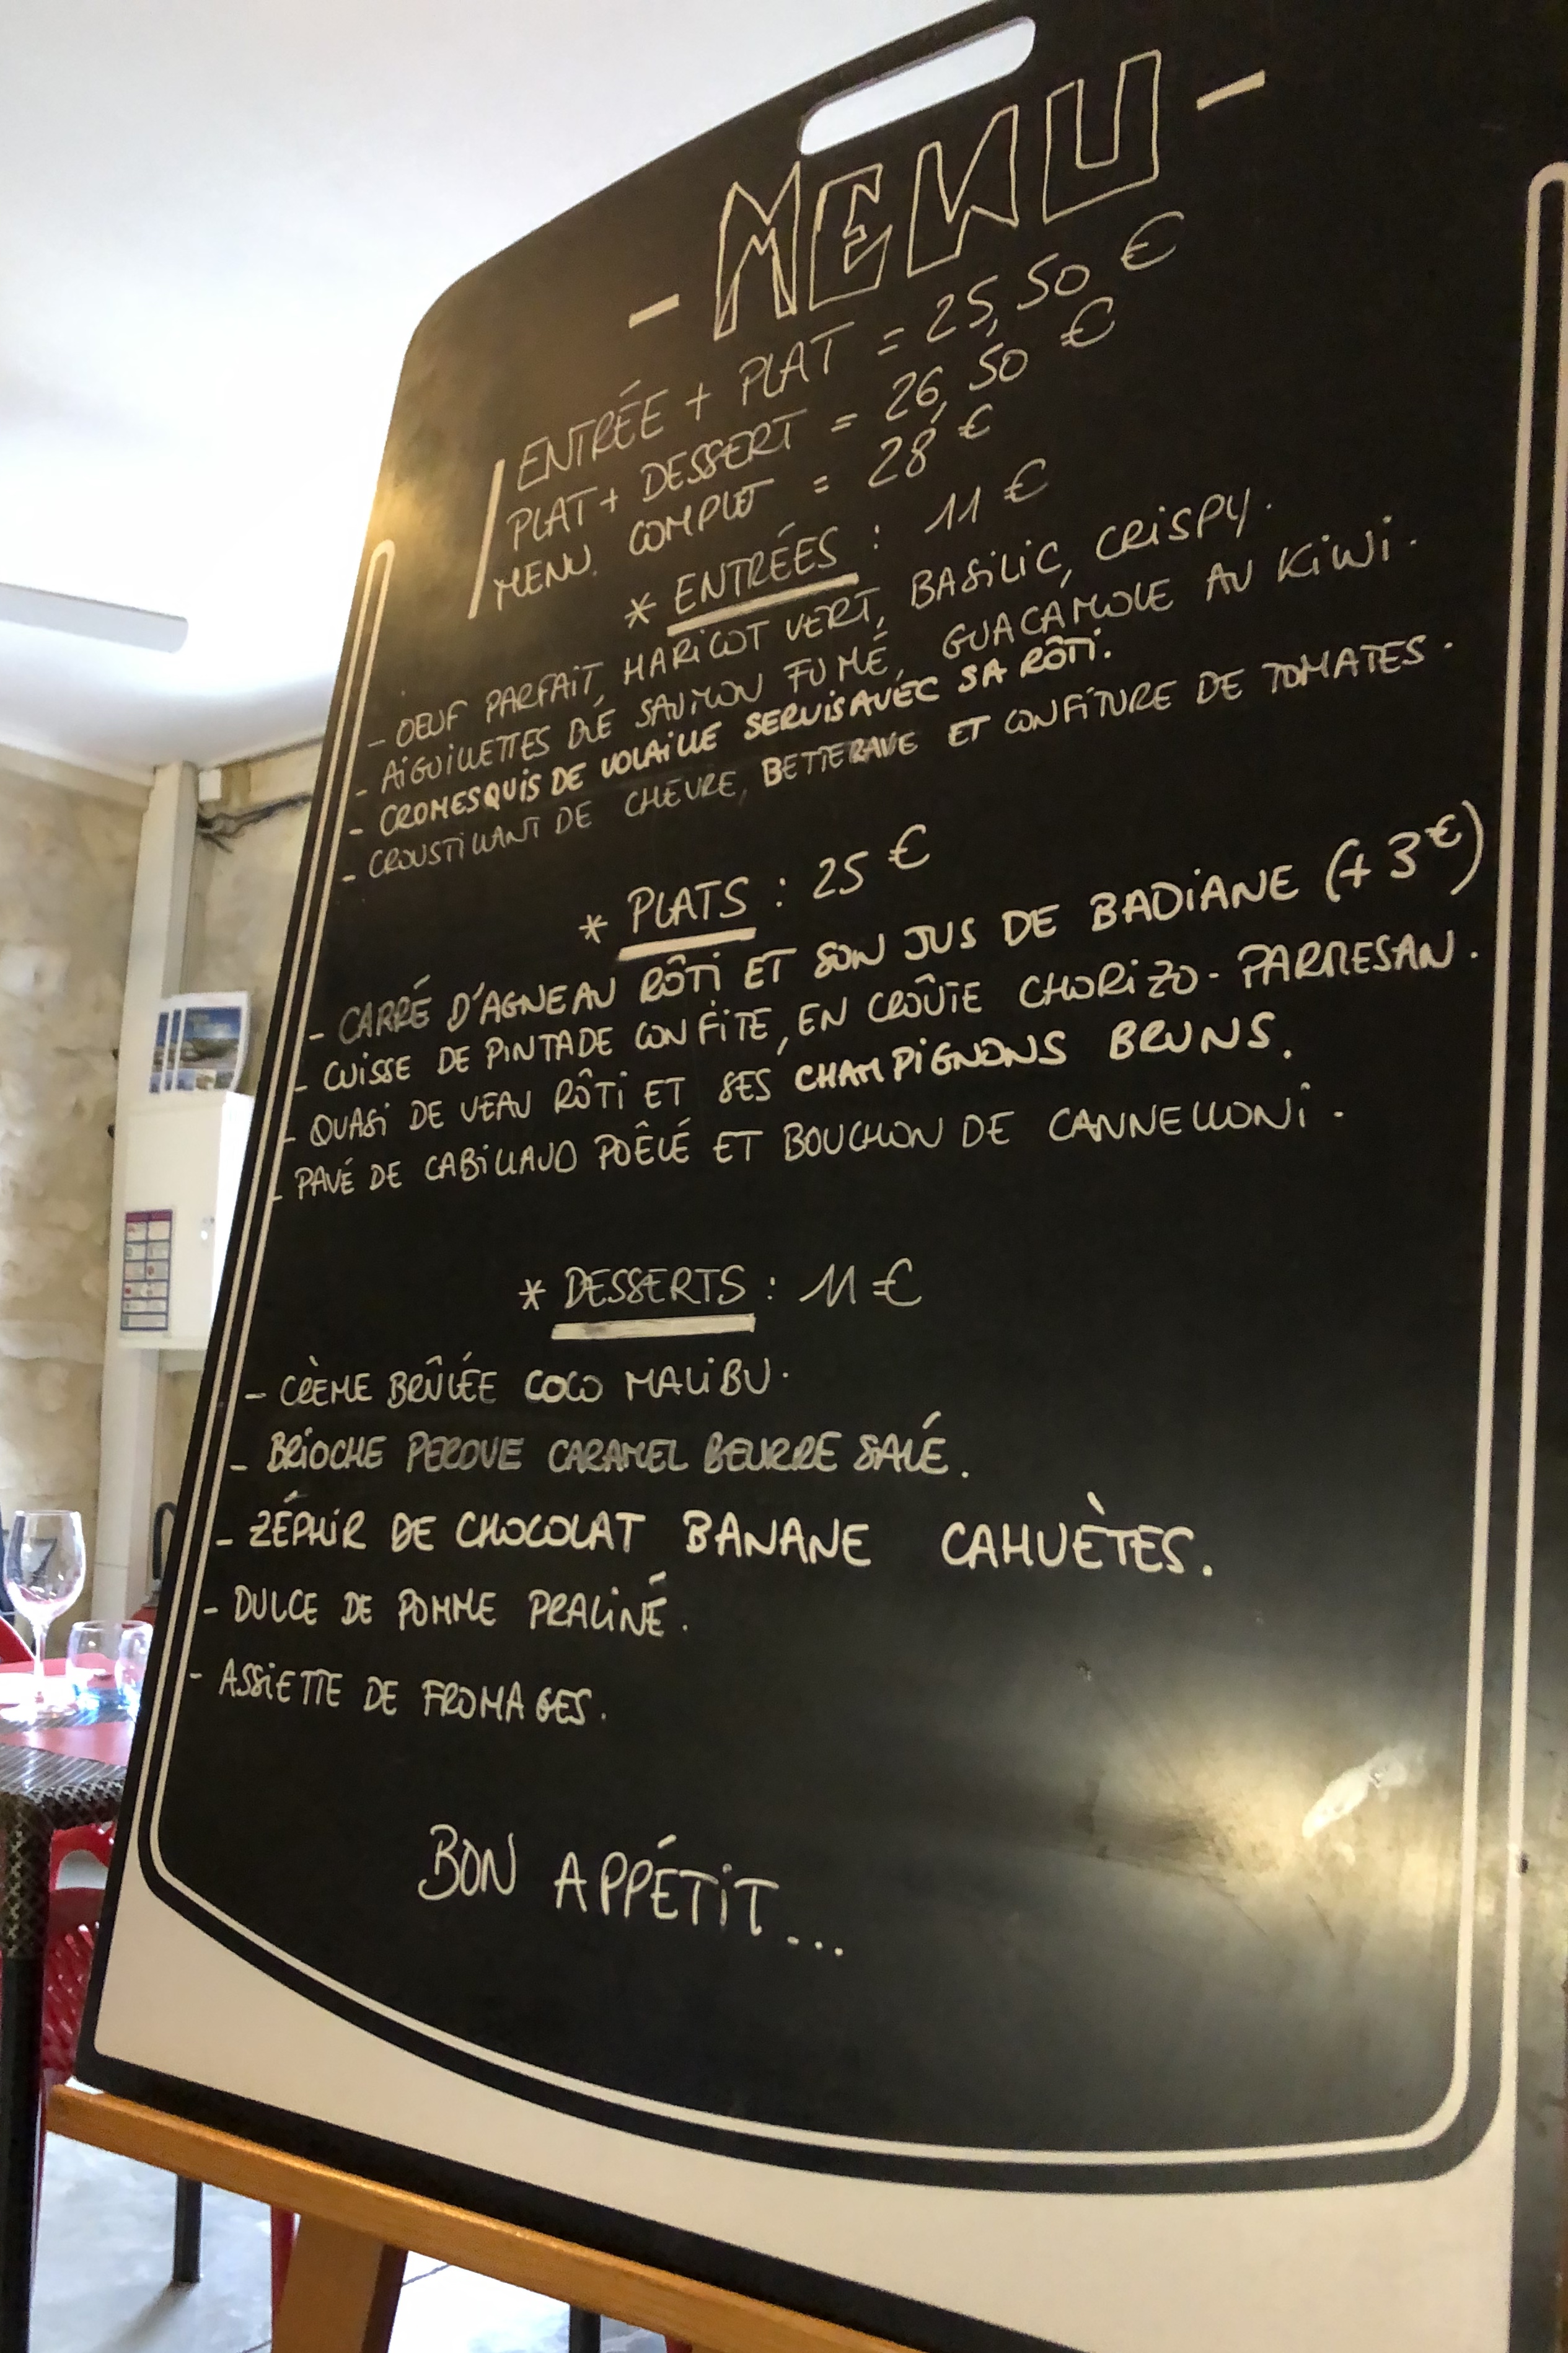 - MENU -
ENTRÉE + PLAT = 25,50 €
PLAT + DESSERT = 26,50 €
MENU COMPLET = 28 €
* ENTRÉES : 11 €
- OEUF PARFAIT, HARICOT VERT, BASILIC, CRISPY.
- AIGUILLETTES DE SAUMON FUMÉ, GUACAMOLE AU KIWI.
- CROMESQUIS DE VOLAILLE SERVIS AVEC SA RÔTI.
- CROUSTILLANT DE CHEVRE, BETTERAVE ET CONFITURE DE TOMATES.
* PLATS : 25 €
- CARRÉ D'AGNEAU RÔTI ET SON JUS DE BADIANE (+ 3€)
- CUISSE DE PINTADE CONFITE, EN CROÛTE CHORIZO - PARMESAN.
- QUASI DE VEAU RÔTI ET SES CHAMPIGNONS BRUNS.
- PAVÉ DE CABILLAUD POÊLÉ ET BOUCHON DE CANNELLONI.
* DESSERTS : 11 €
- CRÈME BRÛLÉE COCO MALIBU.
- BRIOCHE PERDUE CARAMEL BEURRE SALÉ.
- ZÉPHIR DE CHOCOLAT BANANE CAHUÈTES.
- DULCE DE POMME PRALINÉ.
- ASSIETTE DE FROMAGES.
BON APPÉTIT...